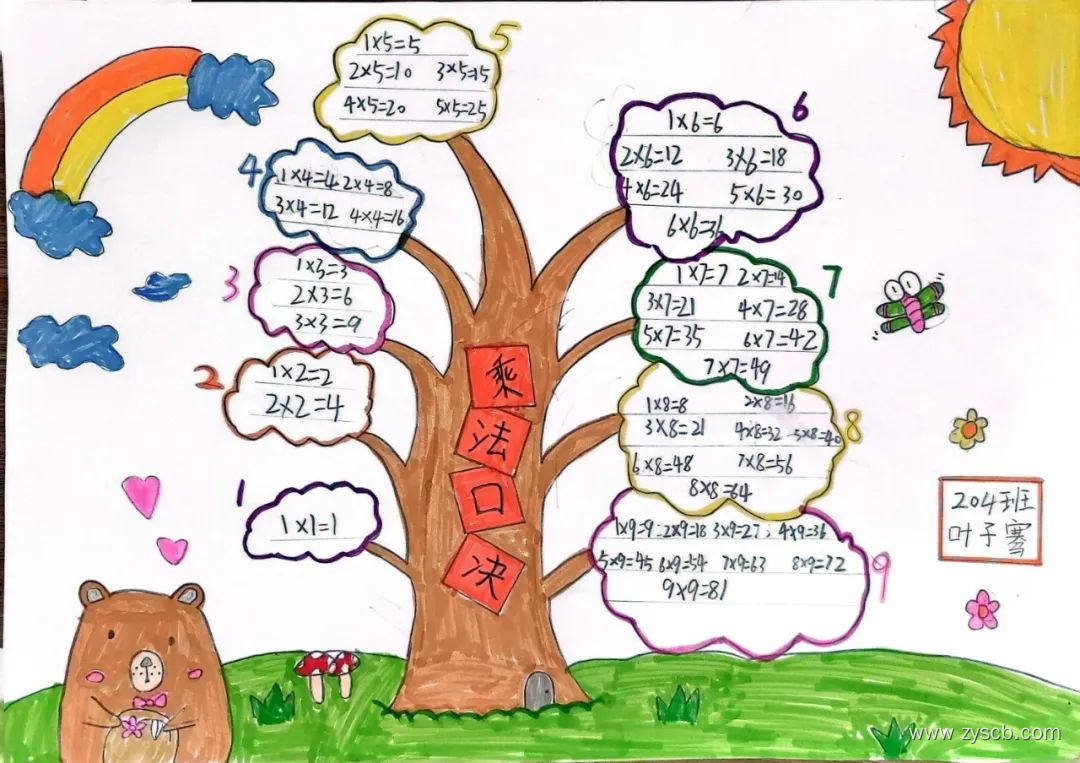 5
1×5=5
2×5=10 3×5=15
4×5=20 5×5=25
4
1×4=4 2×4=8
3×4=12 4×4=16
3
1×3=3
2×3=6
3×3=9
2
1×2=2
2×2=4
1
1×1=1
乘
法
口
决
6
1×6=6
2×6=12 3×6=18
4×6=24 5×6=30
6×6=36
7
1×7=7 2×7=14
3×7=21 4×7=28
5×7=35 6×7=42
7×7=49
8
1×8=8 2×8=16
3×8=21 4×8=32 5×8=40
6×8=48 7×8=56
8×8=64
9
1×9=9 2×9=18 3×9=27 4×9=36
5×9=45 6×9=54 7×9=63 8×9=72
9×9=81
204班
叶子骞
www.zyscb.com